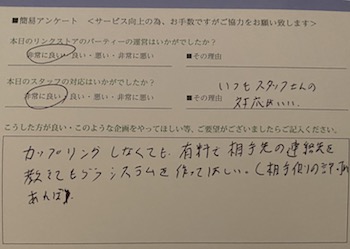 ■簡易アンケート ＜サービス向上の為、お手数ですがご協力をお願い致します＞
本日のリンクストアのパーティーの運営はいかがでしたか？
非常に良い・良い・悪い・非常に悪い ■その理由
本日のスタッフの対応はいかがでしたか？
非常に良い・良い・悪い・非常に悪い ■その理由
いつもスタッフさんの
対応がいい。
こうした方が良い・このような企画をやってほしい等、ご要望がございましたらご記入ください。
カップリングしなくても、有料で相手先の連絡先を
教えてもらうシステムを作ってほしい。(相手側の許可が
あれば)